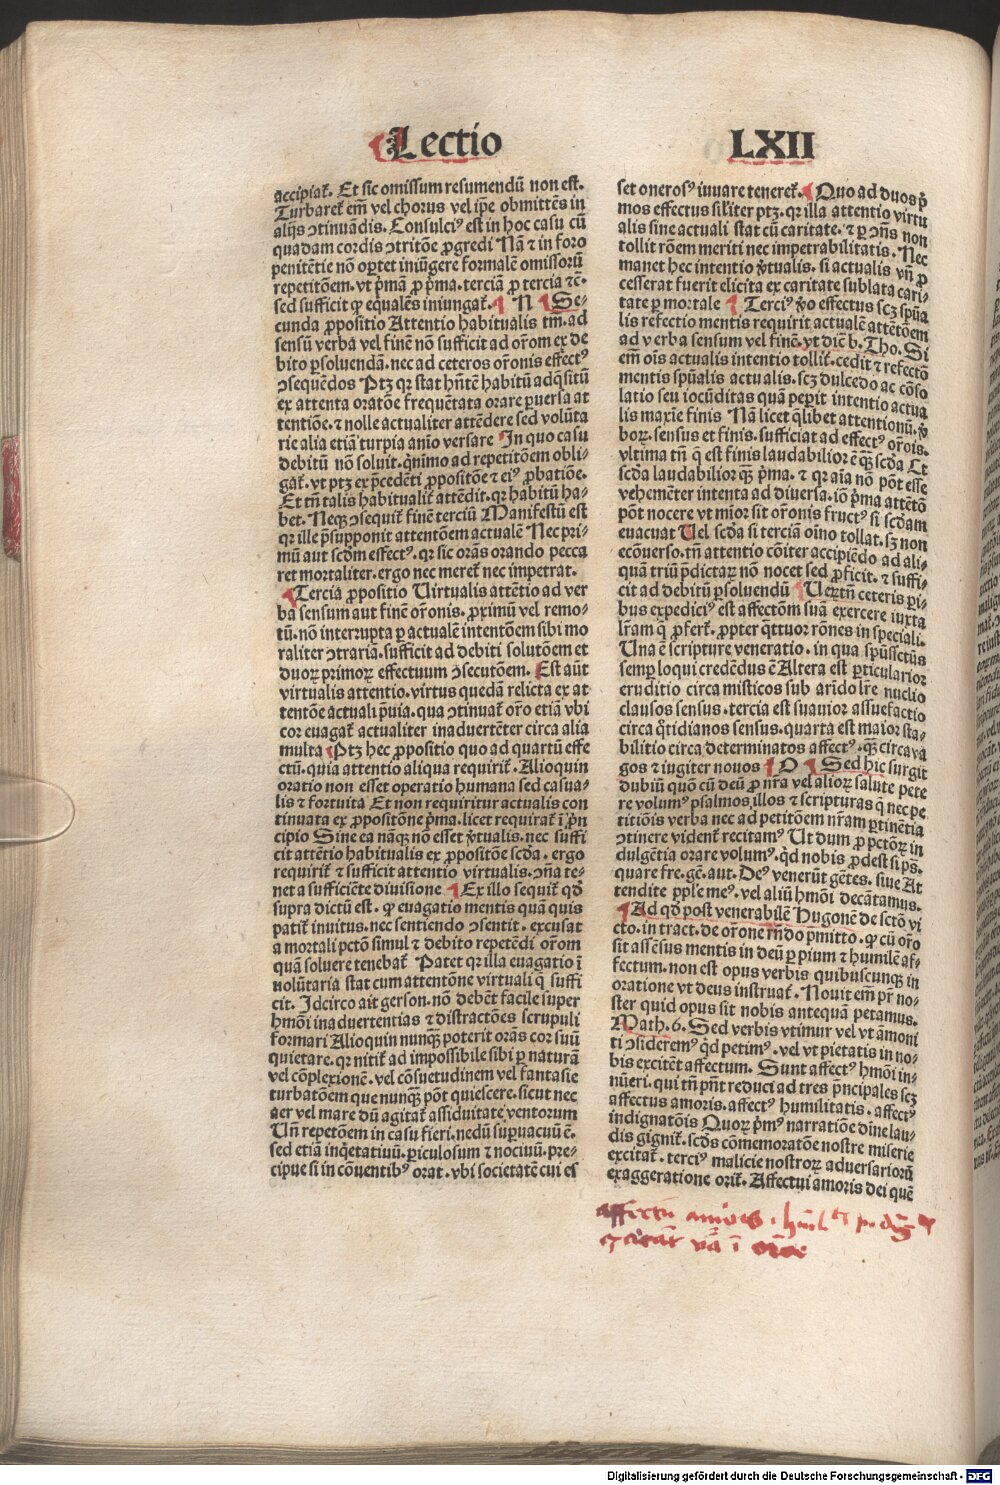 Lectio LXII
accipiat᷑. Et sic omissum resumendū non est.
Turbaret᷑ em̄ vel chorus vel ip̄e obmittēs in
alijs ↄtinuādis. Consulciꝰ est in hoc casu cū
quadam cordis ↄtritōe ꝓgredi Nā ⁊ in foro
penitētie nō oꝑtet iniūgere formalē omissorū
repetitōem. vt p̄mā ꝓ p̄ma. terciā ꝓ tercia ⁊c̄.
sed sufficit ꝙ equalēs iniungat᷑. ¶ N ¶ Se-
cunda ꝓpositio Attentio habitualis tm̄. ad
sensū verba vel finē nō sufficit ad or̄om ex de
bito ꝑsoluendā. nec ad ceteros or̄onis effectꝰ
ↄsequēdos Ptꝫ qr stat hn̄tē habitū adq̄sitū
ex attenta oratōe frequētata orare ꝑuersa at
tentiōe. ⁊ nolle actualiter attēdere sed volūta
rie alia etiā turpia anīo versare In quo casu
debitū nō soluit. q̄nimo ad repetitōem obli-
gat᷑. vt ptꝫ ex p̄cedēti ꝓpositōe ⁊ eiꝰ ꝓbatiōe.
Et tn̄ talis habitualit᷑ attēdit. qr habitū ha-
bet. Neqꝫ ↄsequit᷑ finē terciū Manifestū est
qr ille p̄supponit attentōem actualē Nec pri-
mū aut scd̄m effectꝰ. qr sic orās orando pecca
ret mortaliter. ergo nec meret᷑ nec impetrat.
¶ Tercia ꝓpositio Uirtualis attētio ad ver
ba sensum aut finē or̄onis. ꝓximū vel remo-
tū. nō interrupta ꝑ actualē intentōem sibi mo
raliter ↄtrariā. sufficit ad debiti solutōem et
duoꝝ primoꝝ effectuum ↄsecutōem. Est aūt
virtualis attentio. virtus quedā relicta ex at
tentōe actuali p̄uia. qua ↄtinuat᷑ or̄o etiā vbi
cor euagat᷑ actualiter inaduertēter circa alia
multa ¶ Ptꝫ hec ꝓpositio quo ad quartū effe
ctū. quia attentio aliqua requirit᷑. Alioquin
oratio non esset operatio humana sed casua-
lis ⁊ fortuita Et non requiritur actualis con
tinuata ex ꝓpositōne p̄ma. licet requirat᷑ ī p̄n
cipio Sine ea nāqꝫ nō esset v̄tualis. nec suffi
cit attētio habitualis ex ꝓpositōe scd̄a. ergo
requirit᷑ ⁊ sufficit attentio virtualis. ↄn̄a te-
net a sufficiēte diuisione ¶ Ex illo sequit᷑ qd̄
supra dictū est. ꝙ euagatio mentis quā quis
patit᷑ inuitus. nec sentiendo ↄsentit. excusat
a mortali pctō simul ⁊ debito repetēdi or̄om
quā soluere tenebat᷑ Patet qr illa euagatio ī
uolūtaria stat cum attentōne virtuali q̄ suffi
cit. Idcirco ait gerson. nō debēt facile super
hmōi inaduertentias ⁊ distractōes scrupuli
formari Alioquin nunqꝫ poterit orās cor suū
quietare. qr nitit᷑ ad impossibile sibi ꝑ naturā
vel cōplexionē. vel cōsuetudinem vel fantasie
turbatōem que nunqꝫ pōt quiescere. sicut nec
aer vel mare dū agitat᷑ assiduitate ventorum
Un̄ repetōem in casu fieri. nedū suꝑuacuū ē.
sed etiā inq̄etatiuū. ꝑiculosum ⁊ nociuū. pre-
cipue si in cōuentibꝰ orat. vbi societatē cui es
set onerosꝰ iuuare teneret᷑. ¶ Quo ad duos p̄
mos effectus sil̄iter ptꝫ. qr illa attentio virtu
alis sine actuali stat cū caritate. ⁊ ꝑ ↄn̄s non
tollit rōem meriti nec impetrabilitatis. Nec
manet hec intentio v̄tualis. si actualis vn̄ ꝓ
cesserat fuerit elicita ex caritate sublata cari-
tate ꝑ mortale ¶ Terciꝰ v̄o effectus scꝫ spūa
lis refectio mentis requirit actualē attētōem
ad verba sensum vel finē. vt dic̄ b. Tho. Si
em̄ ois actualis intentio tollit᷑. cedit ⁊ refectō
mentis spūalis actualis. scꝫ dulcedo ac cōso
latio seu iocūditas quā peꝑit intentio actua
lis maxīe finis Nā licet q̄libet attentionū. v̄
boꝝ. sensus et finis. sufficiat ad effectꝰ or̄ois.
vltima tn̄ q̄ est finis laudabilior ē qꝫ scd̄a Et
scd̄a laudabilior qꝫ p̄ma. ⁊ qr aīa nō pōt esse
vehemēter intenta ad diuersa. iō p̄ma attētō
pōt nocere vt mīor sit or̄onis fructꝰ si scd̄am
euacuat Uel scd̄a si terciā oīno tollat. sꝫ non
ecōuerso. tn̄ attentio cōiter accipiēdo ad ali-
quā triū p̄dictaꝝ nō nocet sed ꝓficit. ⁊ suffi-
cit ad debitū ꝑsoluendū ¶ Ueꝝtn̄ ceteris pri-
bus expediciꝰ est affectōm suā exercere iuxta
lr̄am q̄ ꝓfert᷑. ꝓpter q̄ttuor rōnes in speciali.
Una ē scripture veneratio. in qua spūssctūs
semꝑ loqui credēdus ē Altera est ꝑticularior
eruditio circa misticos sub arīdo lr̄e nuclio
clausos sensus. tercia est suauior assuefactio
circa q̄tidianos sensus. quarta est maior sta-
bilitio circa determinatos affectꝰ. qꝫ circa va
gos ⁊ iugiter nouos ¶ O ¶ Sed hic surgit
dubiū quō cū deū ꝓ nr̄a vel alioꝝ salute pete
re volumꝰ psalmos, illos ⁊ scripturas q̄ nec pe
titiōis verba nec ad petitōem nr̄am ꝑtinētia
ↄtinere vident᷑ recitamꝰ Ut dum ꝓ pctōꝝ in
dulgētia orare volumꝰ. qd̄ nobis ꝓdest si pš.
quare fre. gē. aut. Deꝰ venerūt gētes. siue At
tendite popl̄e meꝰ. vel aliū hmōi decātamus.
¶ Ad qd̄ post venerabilē Hugonē de sctō vi
cto. in tract. de or̄one rn̄do p̄mitto. ꝙ cū or̄o
sit assēsus mentis in deū ꝑ pium ⁊ humilē af-
fectum. non est opus verbis quibuscunqꝫ in
oratione vt deus instruat᷑. Nouit em̄ pr̄ no-
ster quid opus sit nobis antequā petamus.
Math. 6. Sed verbis vtimur vel vt āmoni
ti ↄsideremꝰ qd̄ petimꝰ. vel vt pietatis in no-
bis excitēt affectum. Sunt affectꝰ hmōi in-
nūeri. qui tn̄ pn̄t reduci ad tres p̄ncipales scꝫ
affectus amoris. affectꝰ humilitatis. affectꝰ
indignatōis Quoꝝ p̄mꝰ narratiōe dīne lau-
dis gignit᷑. scd̄s cōmemoratōe nostre miserie
excitat᷑. terciꝰ malicie nostroꝝ aduersarioꝝ
exaggeratione orit᷑. Affectui amoris dei quē
affectū amoris